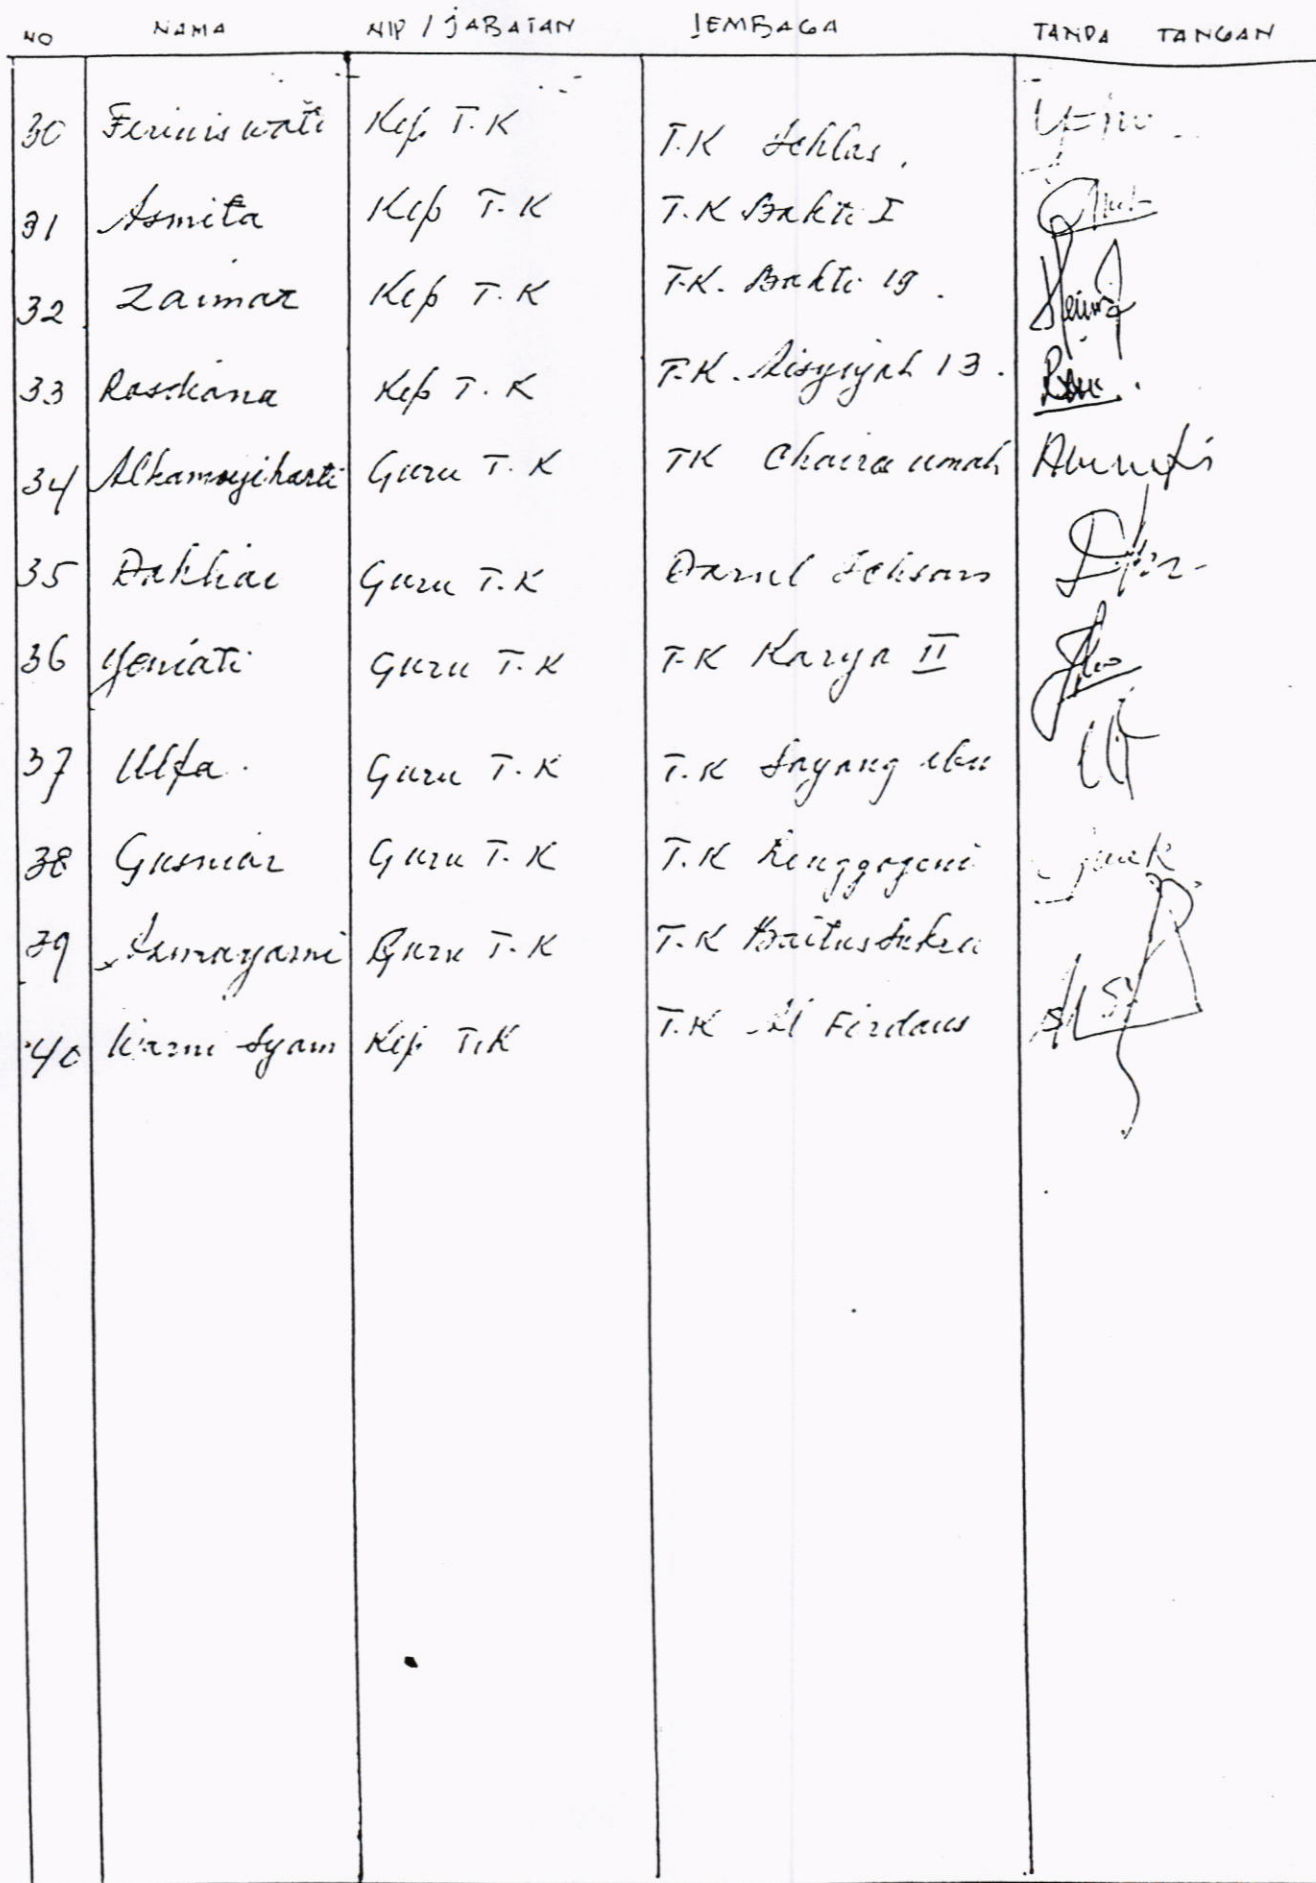 NO NAMA NIP / JABATAN LEMBAGA TANDA TANGAN
30 Ferniswati Kep T.K T.K Ichlas.
31 Asmita Kep T.K T.K Bakti I
32 Zaimar Kep T.K T.K. Bakti 19.
33 Rosdiana Kep T.K T.K. Aisyiyah 13.
34 Guru T.K TK Chaira umah
35 Guru T.K Darul Ichsan
36 Yeniati Guru T.K T.K Karya II
37 Ulfa. Guru T.K T.K Sayang ibu
38 Gusniar Guru T.K T.K
39 Guru T.K T.K Baitus
40 Syam Kep T.K T.K Al Firdaus